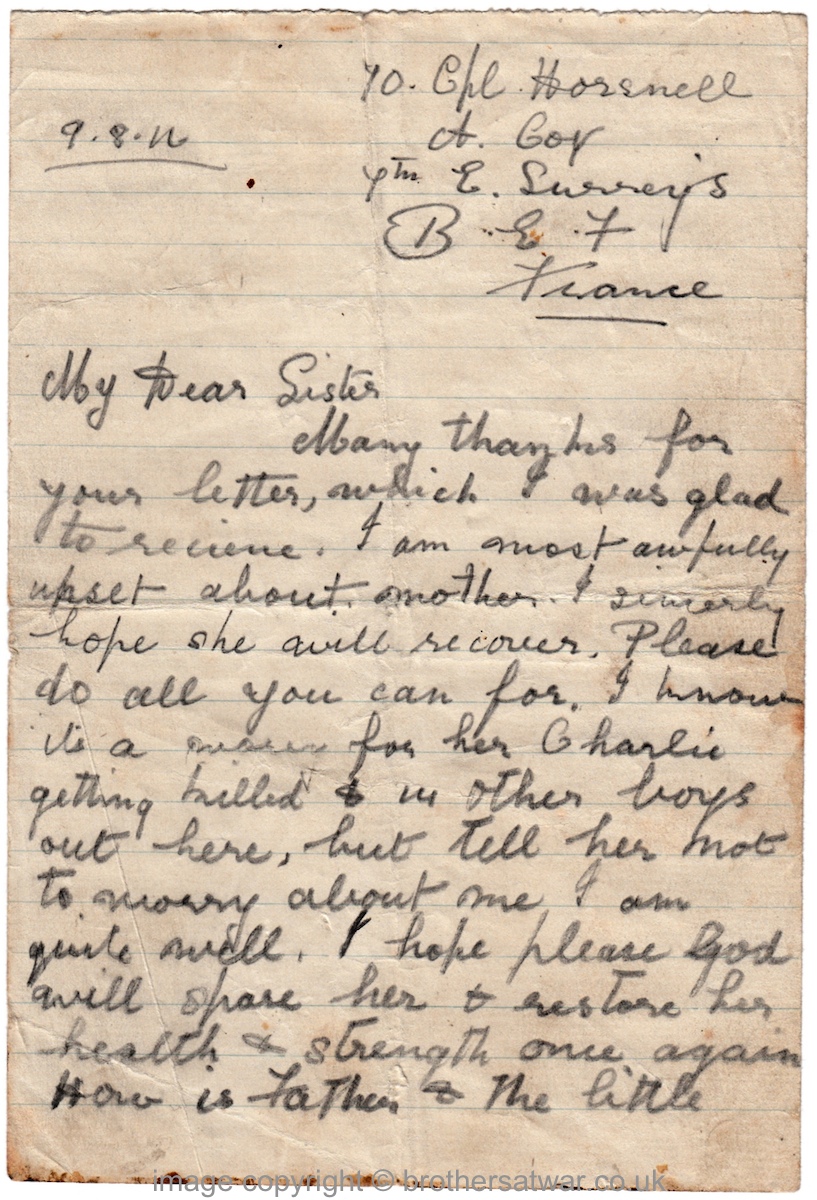 70. Cpl Horsnell
9.8.16
A. Coy
7th E. Surrey's
B.E.F
France
My Dear Sister
Many thanks for
your letter, which I was glad
to recieve. I am most awfully
upset about mother. I sincerly
hope she will recover. Please
do all you can for. I know
its a for her Charlie
getting killed & us other boys
out here, but tell her not
to worry about me I am
quite well. I hope please God
will spare her & restore her
health & strength once again
How is Father & the little
image copyright © brothersatwar.co.uk